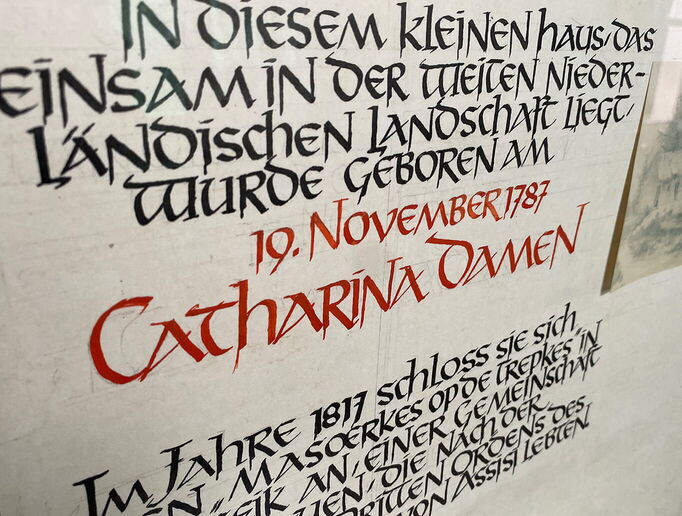 IN DIESEM kleinen haus, das
EINSAM IN DER WEITEN NIEDER-
LÄNDISCHEN LANDSCHAFT LIEGT,
WURDE GEBOREN AM
19. NOVEMBER 1787
CATHARINA DAMEN
IM JAHRE 1817 schloss sie sich
EN „MASOERKES OP DE TREPKES" IN
EIK AN, EINER GEMEINSCHAFT
UEN, DIE NACH DER
RITTEN ORDENS DES
VON ASSISI LEBTEN.